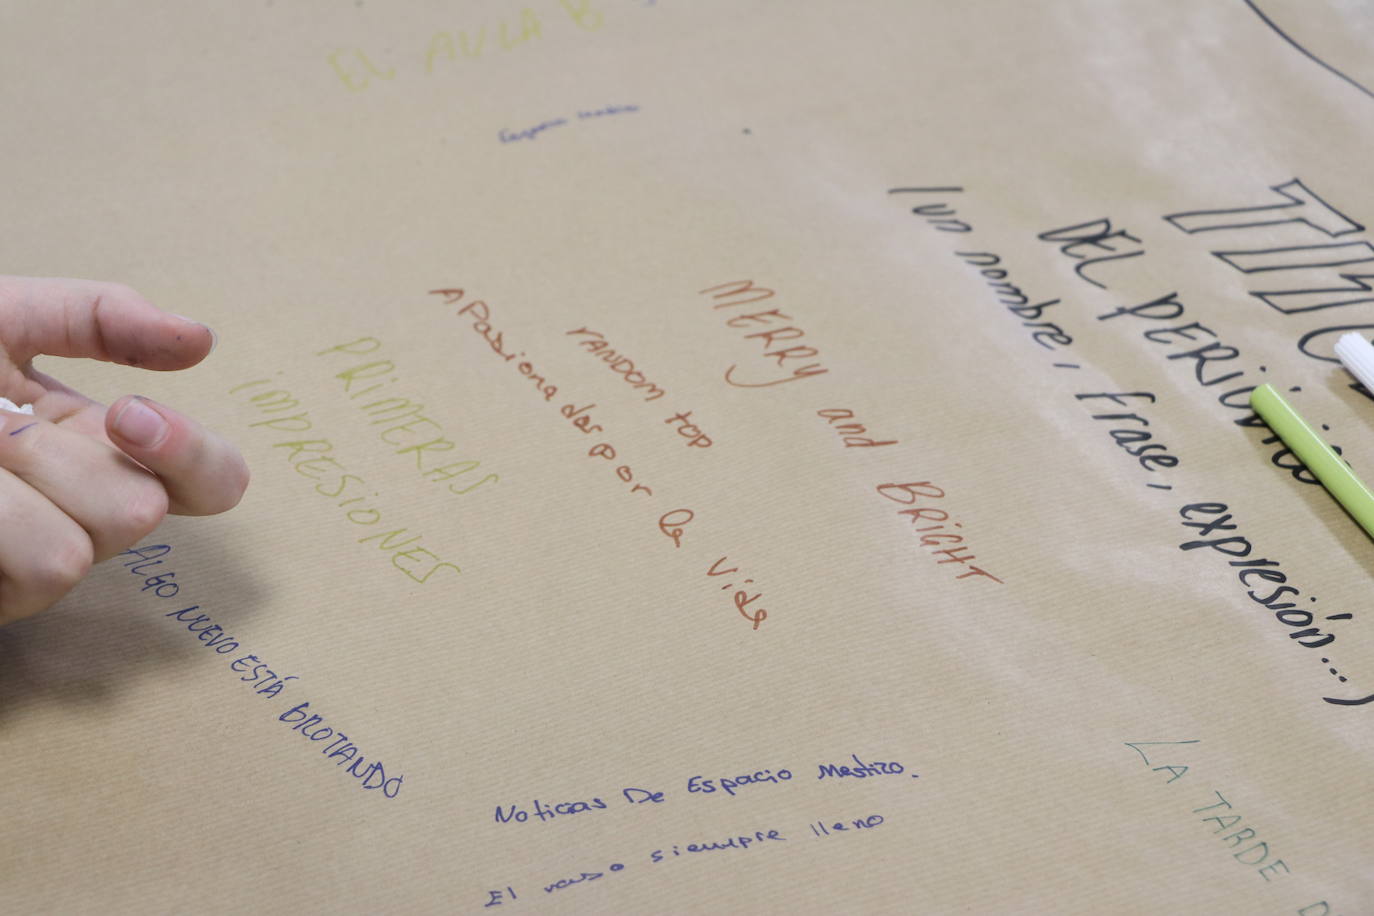 EL AULA B
DEL PERIÓDICO
(un nombre, frase, expresión...)
MERRY and BRIGHT
RANDOM TOP
APasionadas por la vida
PRIMERAS
IMPRESIONES
ALGO NUEVO ESTÁ BROTANDO
Noticias De Espacio Mestizo.
El vaso siempre lleno
LA TARDE